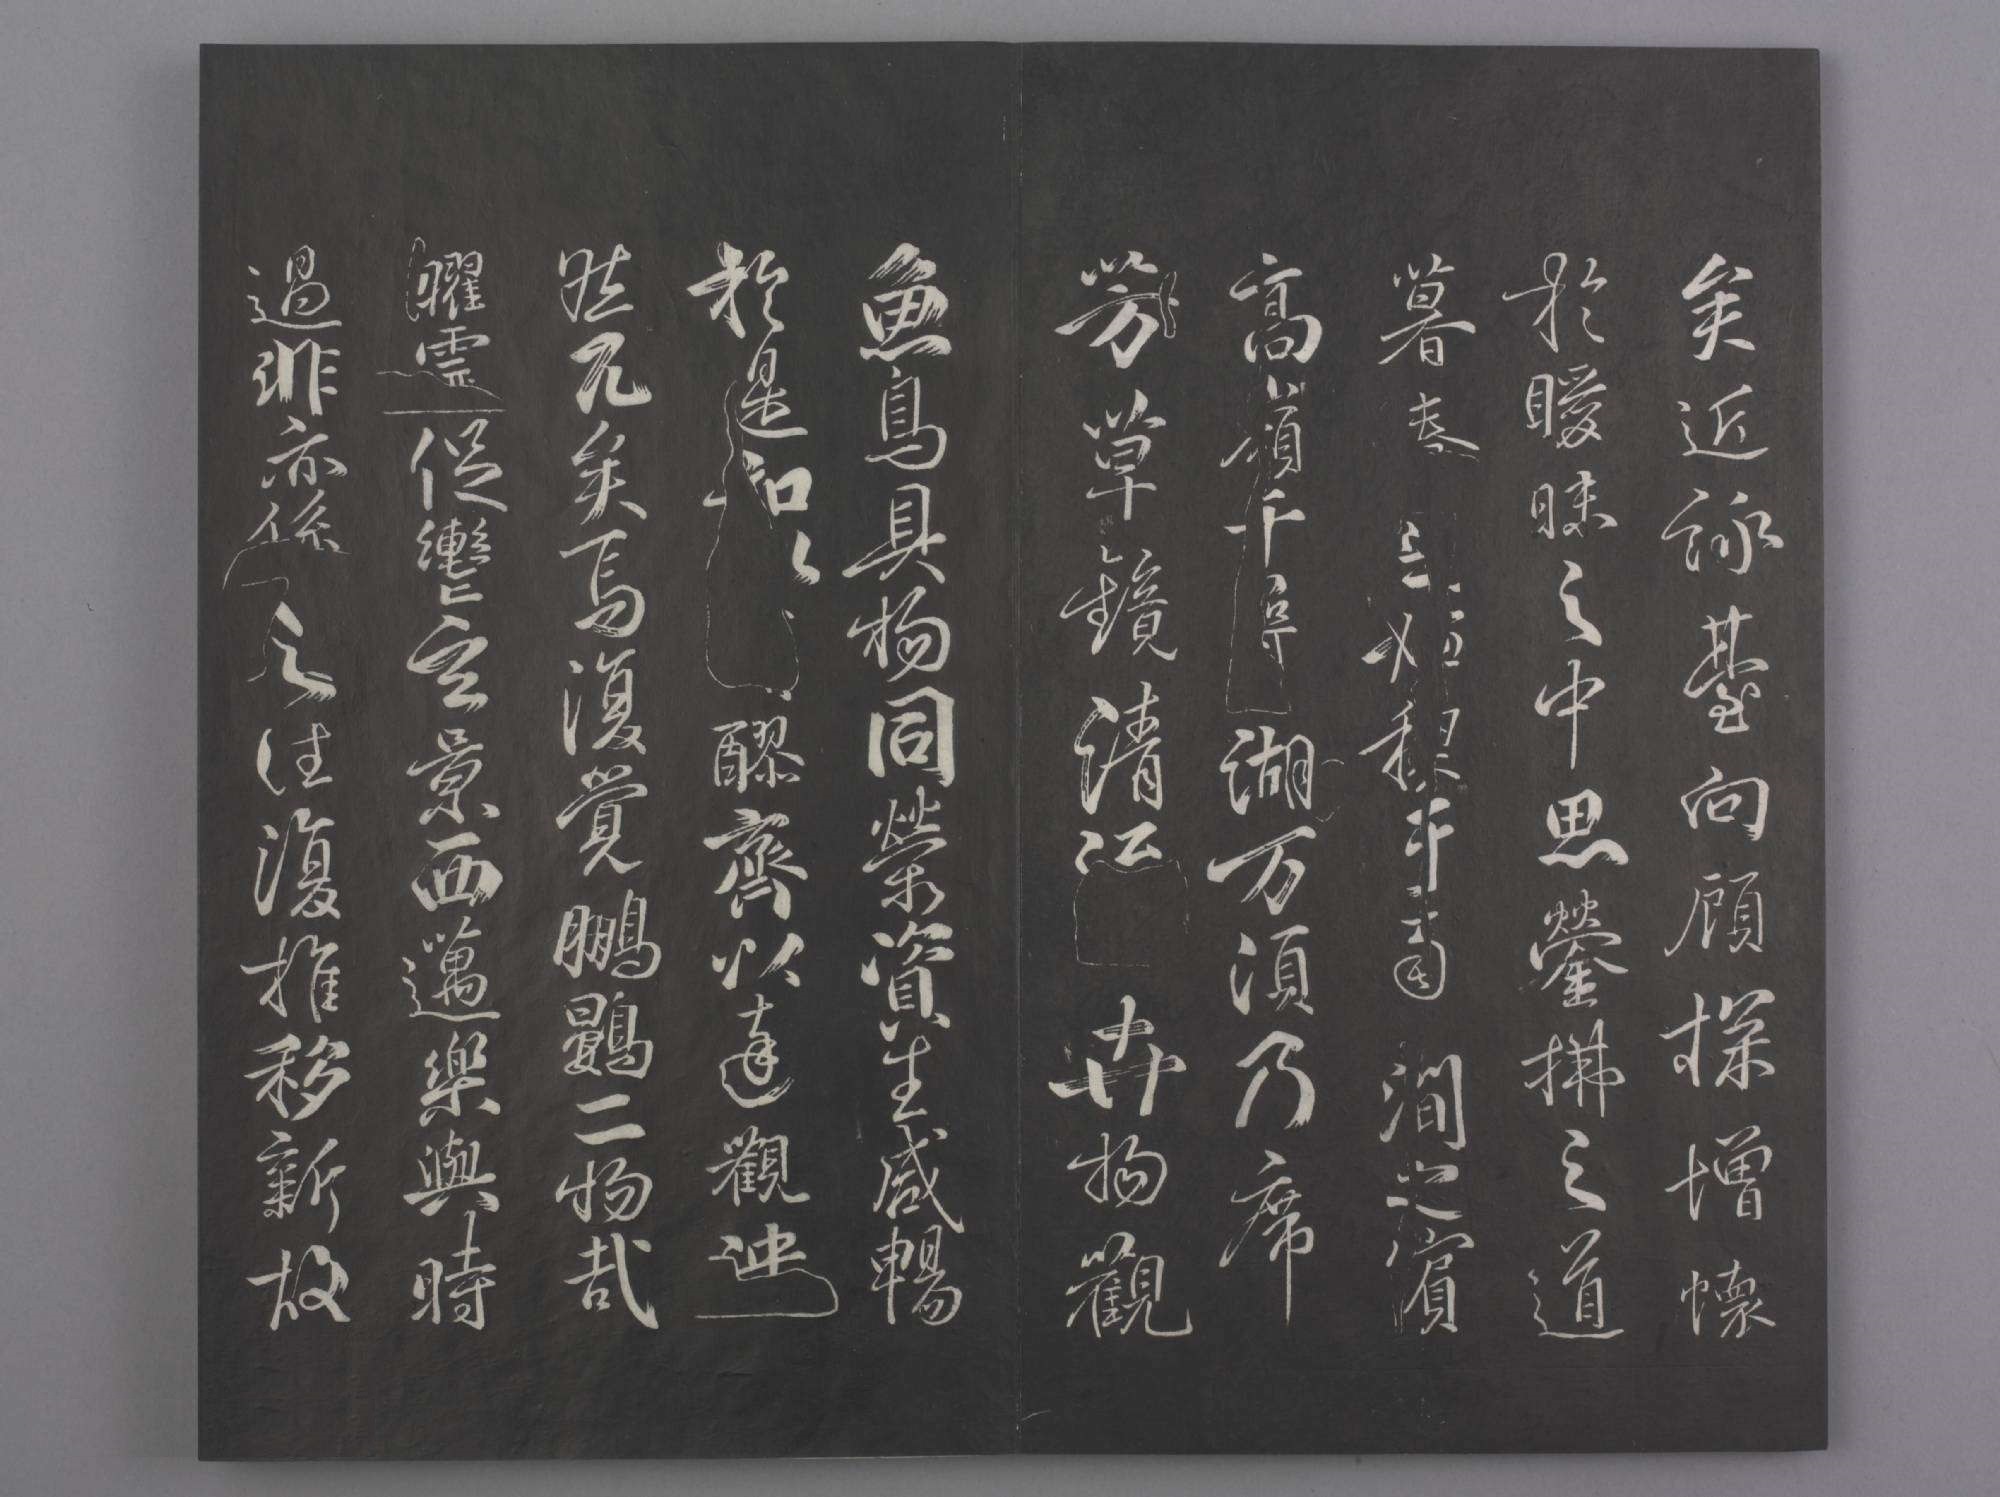 矣近詠臺向顧探增懷
於曖昧之中思縈拂之道
暮春 澗之濱
高嶺千尋 湖万頃乃席
芳草鏡清 卉物觀
魚鳥具物同榮資生咸暢
於是和以 醪齊以達觀泱
然兀矣焉復覺鵬鷃二物哉
曜靈促轡玄景西邁樂與時
過悲亦係之往復推移新故